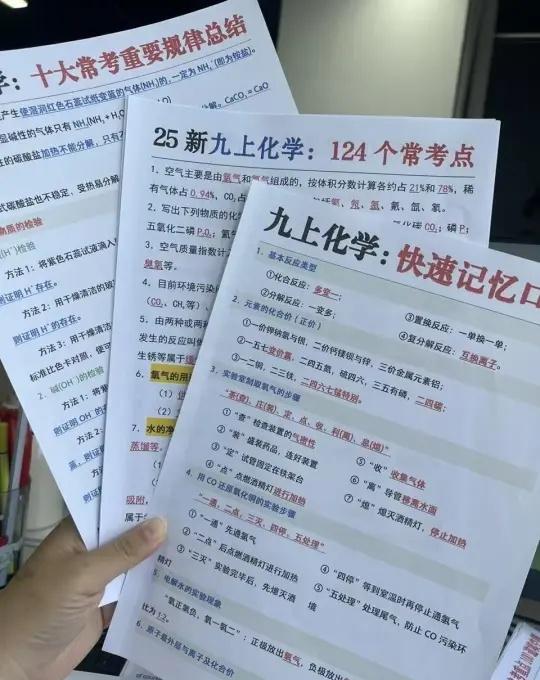 学：十大常考重要规律总结
产生使湿润红色石蕊试纸变蓝的气体(NH₃)的，一定为 NH₄⁺(即为铵盐)。
显碱性的气体只有 NH₃(NH₃＋H₂O
的碳酸盐加热不能分解，只有
CaCO₃ = CaO
式碳酸盐也不稳定，受热易分解
物质的检验
(H⁺)检验
方法 1：将紫色石蕊试液滴入
则证明 H⁺存在。
方法 2：用干燥清洁的玻
则证明 H⁺的存在。
方法 3：用干燥清洁
标准比色卡对照，便可
2、碱(OH⁻)的检验
方法 1：将
则证明 OH⁻的
方法 2：
蓝，则证明
方法
则证
25 新九上化学：124 个常考点
1、空气主要是由氮气和氧气组成的，按体积分数计算各约占 21%和 78%，稀
有气体占 0.94%，CO₂占
氦、氖、氩、氪、氙、氡。
2、写出下列物质的化
二氧化碳 CO₂；磷 P；
五氧化二磷 P₂O₅；氮气
3、空气质量指数计
臭氧等。
4、目前环境污染问
(CO₂、CH₄等)、
5、由两种或两种
发生的反应叫做
生锈等属于缓
6、氧气的用
(1)供
(2)
7、水的净
蒸馏等。
(1
吸附，
属于
九上化学：快速记忆口
1、基本反应类型
①化合反应：多变一；
③置换反应：一单换一单；
②分解反应：一变多；
④复分解反应：互换离子。
2、元素的化合价（正价）
①一价钾钠氯与银，二价钙镁钡与锌，三价金属元素铝；
②一五七变价氯，二四五氮，硫四六，三五有磷，二四碳；
③一二铜，二三铁，二四六七锰特别。
3、实验室制取氧气的步骤
“茶(查)、庄(装)、定、点、收、利(离)、息(熄)”
①“查”检查装置的气密性
②“装”盛装药品，连好装置
⑤“收”收集气体
③“定”试管固定在铁架台
⑥“离”导管移离水面
④“点”点燃酒精灯进行加热
⑦“熄”熄灭酒精灯，停止加热
4、用 CO 还原氧化铜的实验步骤
“一通，二点，三灭，四停，五处理”
①“一通”先通氢气
②“二点”后点燃酒精灯进行加热
④“四停”等到室温时再停止通氢气
③“三灭”实验完毕后，先熄灭酒精灯
⑤“五处理”处理尾气，防止 CO 污染环境
5、电解水的实验现象
“氧正氢负，氧一氢二”：正极放出氧气，负极放出
比为 1:2。
6、原子最外层与离子及化合价